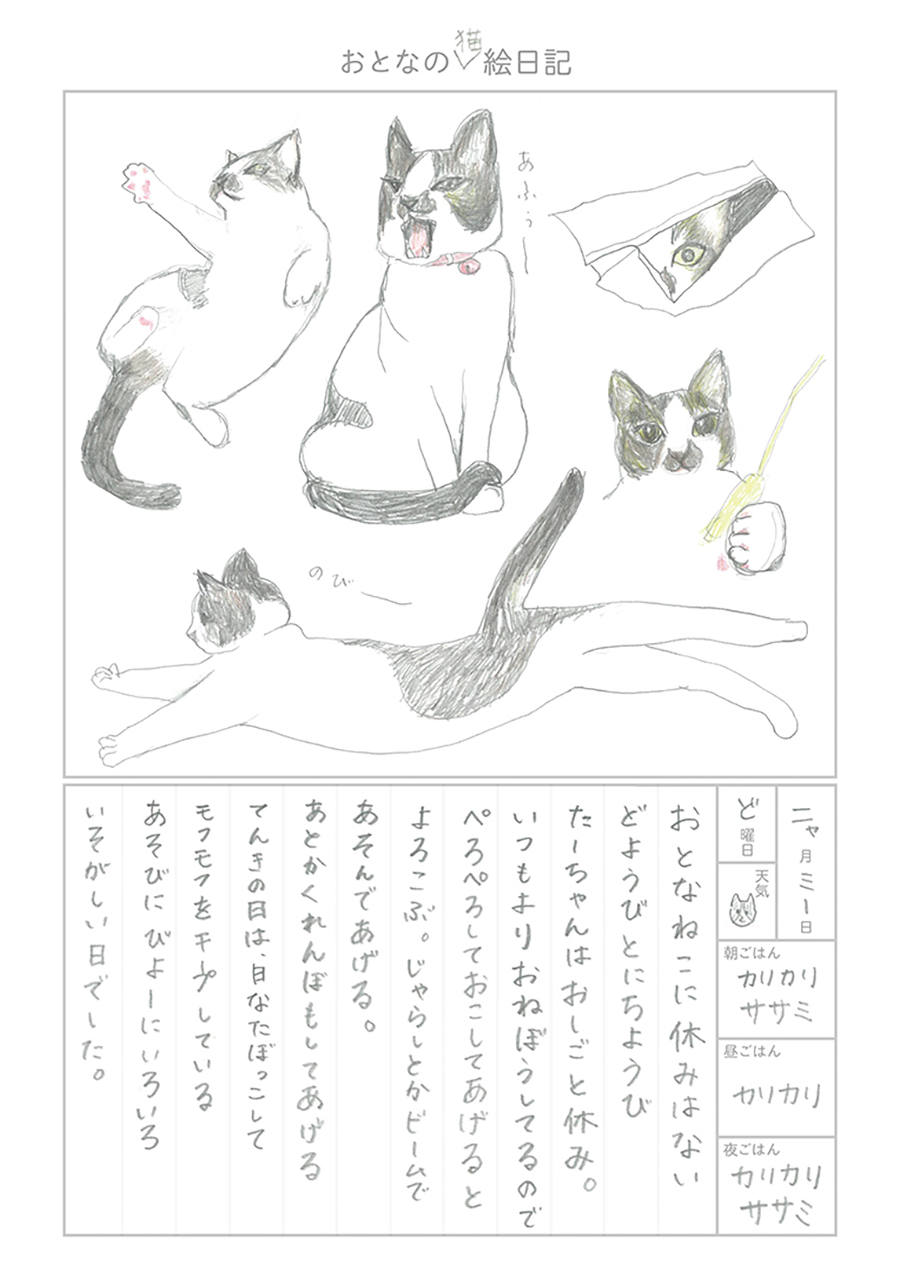 おとなの猫絵日記
あふぅー
のびー
ニャ月ミー日
ど曜日
天気
朝ごはん
カリカリ
ササミ
昼ごはん
カリカリ
夜ごはん
カリカリ
ササミ
おとなねこに休みはない
どようびとにちようび
たーちゃんはおしごと休み。
いつもよりおねぼうしてるので
ぺろぺろしておこしてあげると
よろこぶ。じゃらしとかビームで
あそんであげる。
あとかくれんぼもしてあげる
てんきの日は、日なたぼっこして
モフモフをキープしている
あそびにびよーにいろいろ
いそがしい日でした。